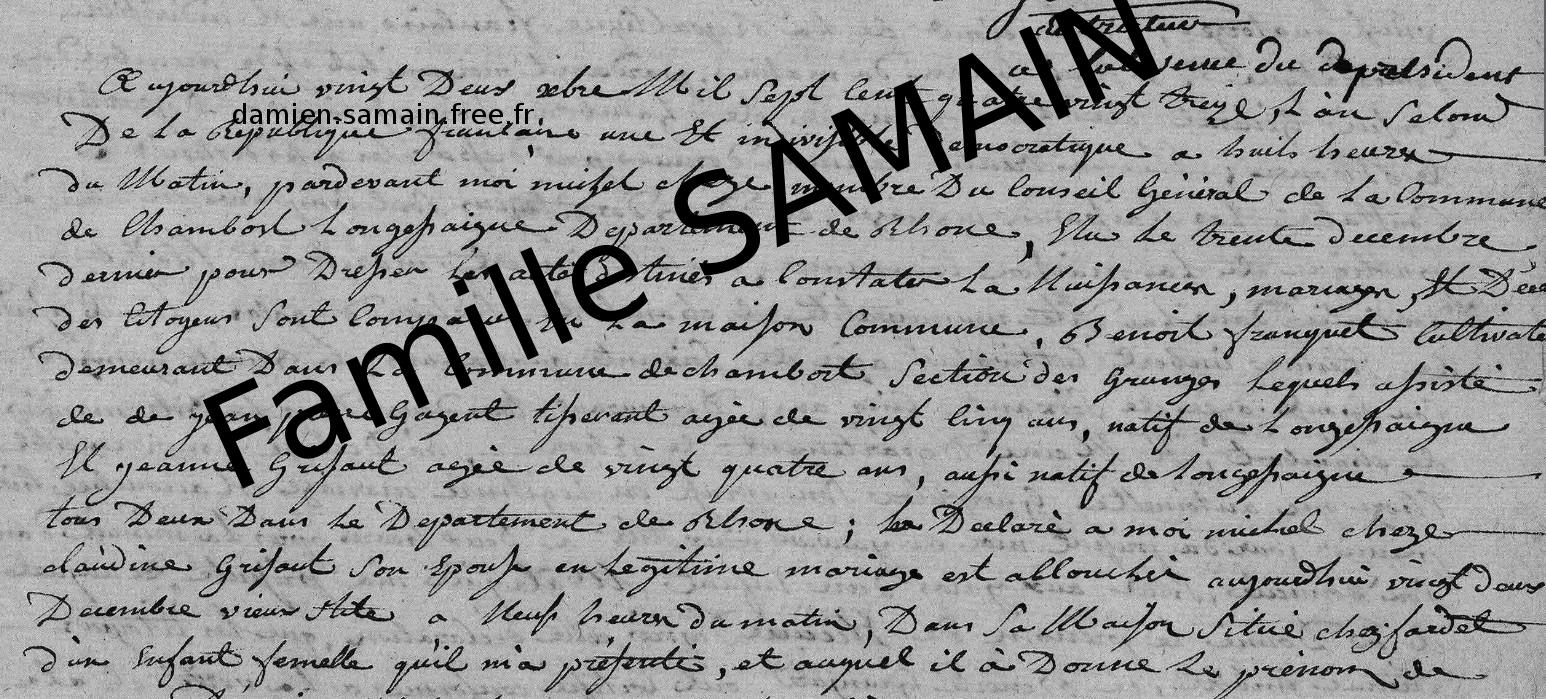 du de president
Aujourdhui vingt Deux xbre Mil Sept Cent quatre vingt treize, L'an Second
damien.samain.free.fr
De La Republique francaise une Et indivisible Democratique a huit heures
du Matin, pardevant moi michel cheze membre Du Conseil Général de La Commune
de Chambost Longessaigne Departement de Rhone, Elu Le trente decembre
dernier pour Dresser Les actes destinés a Constater La Naissances, mariages, Et Décè
des Citoyens Sont Comparu En La maison Commune, Benoit franquet Cultivate
demeurant Dans La Commune de chambost Section des Granges Lequels assisté
de de jean pierre Gazent tisserant agée de vingt Cinq ans, natif de Longessaigne
Et jeanne Grisaut agée de vingt quatre ans, aussi natif de Longessaigne
tous Deux Dans Le Departement de Rhone ; Declaré a moi michel cheze
claudine Grisaut Son Epouse en Legitime mariage est allouchée aujourdhui vingt deux
Decembre vieux Stile a Neuf heures du matin, Dans Sa Maison Situé chez fardet
d'un Enfant femelle qu'il m'a présenté, et auquel il à Donne Le prénom de
Famille SAMAIN